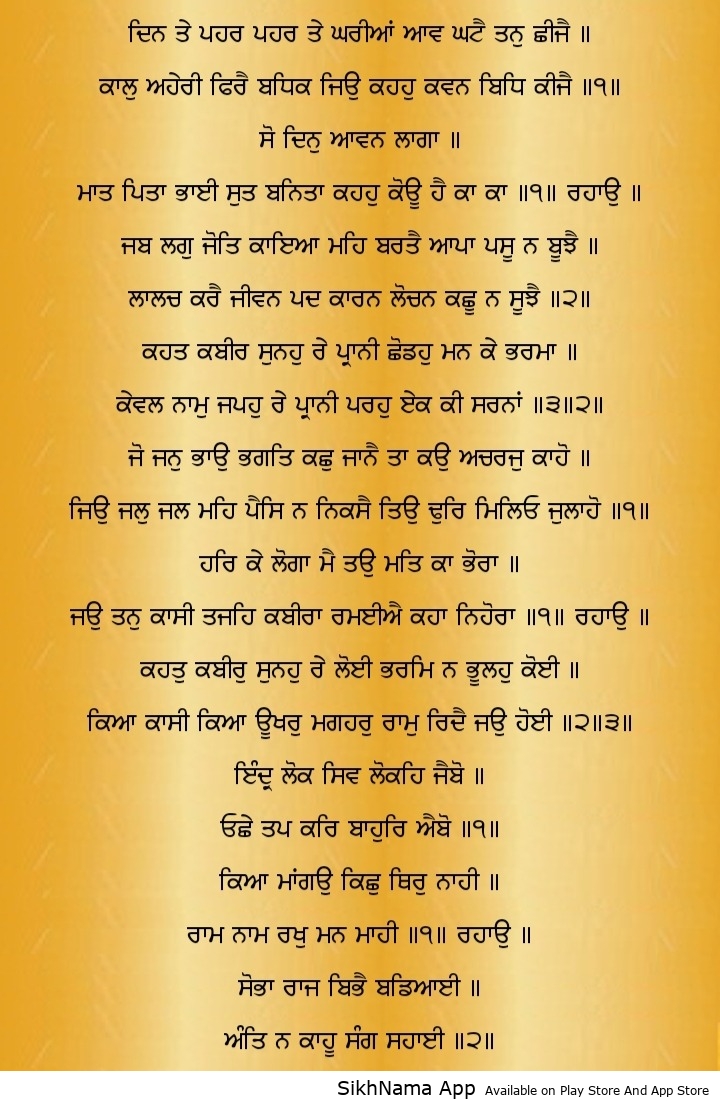 ਦਿਨ ਤੇ ਪਹਰ ਪਹਰ ਤੇ ਘਰੀਆਂ ਆਵ ਘਟੈ ਤਨੁ ਛੀਜੈ ॥
ਕਾਲੁ ਅਹੇਰੀ ਫਿਰੈ ਬਧਿਕ ਜਿਉ ਕਹਹੁ ਕਵਨ ਬਿਧਿ ਕੀਜੈ ॥੧॥
ਸੋ ਦਿਨੁ ਆਵਨ ਲਾਗਾ ॥
ਮਾਤ ਪਿਤਾ ਭਾਈ ਸੁਤ ਬਨਿਤਾ ਕਹਹੁ ਕੋਊ ਹੈ ਕਾ ਕਾ ॥੧॥ ਰਹਾਉ ॥
ਜਬ ਲਗੁ ਜੋਤਿ ਕਾਇਆ ਮਹਿ ਬਰਤੈ ਆਪਾ ਪਸੂ ਨ ਬੂਝੈ ॥
ਲਾਲਚ ਕਰੈ ਜੀਵਨ ਪਦ ਕਾਰਨ ਲੋਚਨ ਕਛੂ ਨ ਸੂਝੈ ॥੨॥
ਕਹਤ ਕਬੀਰ ਸੁਨਹੁ ਰੇ ਪ੍ਰਾਨੀ ਛੋਡਹੁ ਮਨ ਕੇ ਭਰਮਾ ॥
ਕੇਵਲ ਨਾਮੁ ਜਪਹੁ ਰੇ ਪ੍ਰਾਨੀ ਪਰਹੁ ਏਕ ਕੀ ਸਰਨਾਂ ॥੩॥੨॥
ਜੋ ਜਨੁ ਭਾਉ ਭਗਤਿ ਕਛੁ ਜਾਨੈ ਤਾ ਕਉ ਅਚਰਜੁ ਕਾਹੋ ॥
ਜਿਉ ਜਲੁ ਜਲ ਮਹਿ ਪੈਸਿ ਨ ਨਿਕਸੈ ਤਿਉ ਢੁਰਿ ਮਿਲਿਓ ਜੁਲਾਹੋ ॥੧॥
ਹਰਿ ਕੇ ਲੋਗਾ ਮੈ ਤਉ ਮਤਿ ਕਾ ਭੋਰਾ ॥
ਜਉ ਤਨੁ ਕਾਸੀ ਤਜਹਿ ਕਬੀਰਾ ਰਮਈਐ ਕਹਾ ਨਿਹੋਰਾ ॥੧॥ ਰਹਾਉ ॥
ਕਹਤੁ ਕਬੀਰੁ ਸੁਨਹੁ ਰੇ ਲੋਈ ਭਰਮਿ ਨ ਭੂਲਹੁ ਕੋਈ ॥
ਕਿਆ ਕਾਸੀ ਕਿਆ ਊਖਰੁ ਮਗਹਰੁ ਰਾਮੁ ਰਿਦੈ ਜਉ ਹੋਈ ॥੨॥੩॥
ਇੰਦ੍ਰ ਲੋਕ ਸਿਵ ਲੋਕਹਿ ਜੈਬੋ ॥
ਓਛੇ ਤਪ ਕਰਿ ਬਾਹੁਰਿ ਐਬੋ ॥੧॥
ਕਿਆ ਮਾਂਗਉ ਕਿਛੁ ਥਿਰੁ ਨਾਹੀ ॥
ਰਾਮ ਨਾਮ ਰਖੁ ਮਨ ਮਾਹੀ ॥੧॥ ਰਹਾਉ ॥
ਸੋਭਾ ਰਾਜ ਬਿਭੈ ਬਡਿਆਈ ॥
ਅੰਤਿ ਨ ਕਾਹੂ ਸੰਗ ਸਹਾਈ ॥੨॥
SikhNama App Available on Play Store And App Store